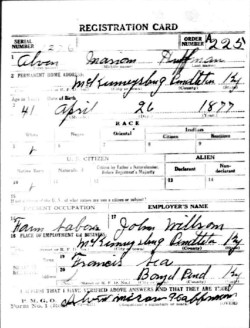 REGISTRATION CARD
SERIAL NUMBER
ORDER NUMBER A225
Alvin Marion Huffman
2 PERMANENT HOME ADDRESS
McKinneysburg Pendleton Ky
41 April 26 1877
RACE
White
Negro
Oriental
Indian
Citizen
Noncitizen
U. S. CITIZEN
ALIEN
Native Born
Naturalized
Citizen by Father's Naturalization Before Registrant's Majority
Declarant
Non-declarant
PRESENT OCCUPATION
EMPLOYER'S NAME
Farm labor
John Willson
PLACE OF EMPLOYMENT OR BUSINESS
McKinneysburg Pendleton Ky
Francis
Boyd Pend Ky
I AFFIRM THAT I HAVE VERIFIED ABOVE ANSWERS AND THAT THEY ARE TRUE
P. M. G. O.
Form No. 1
Alvin Marion Huffman